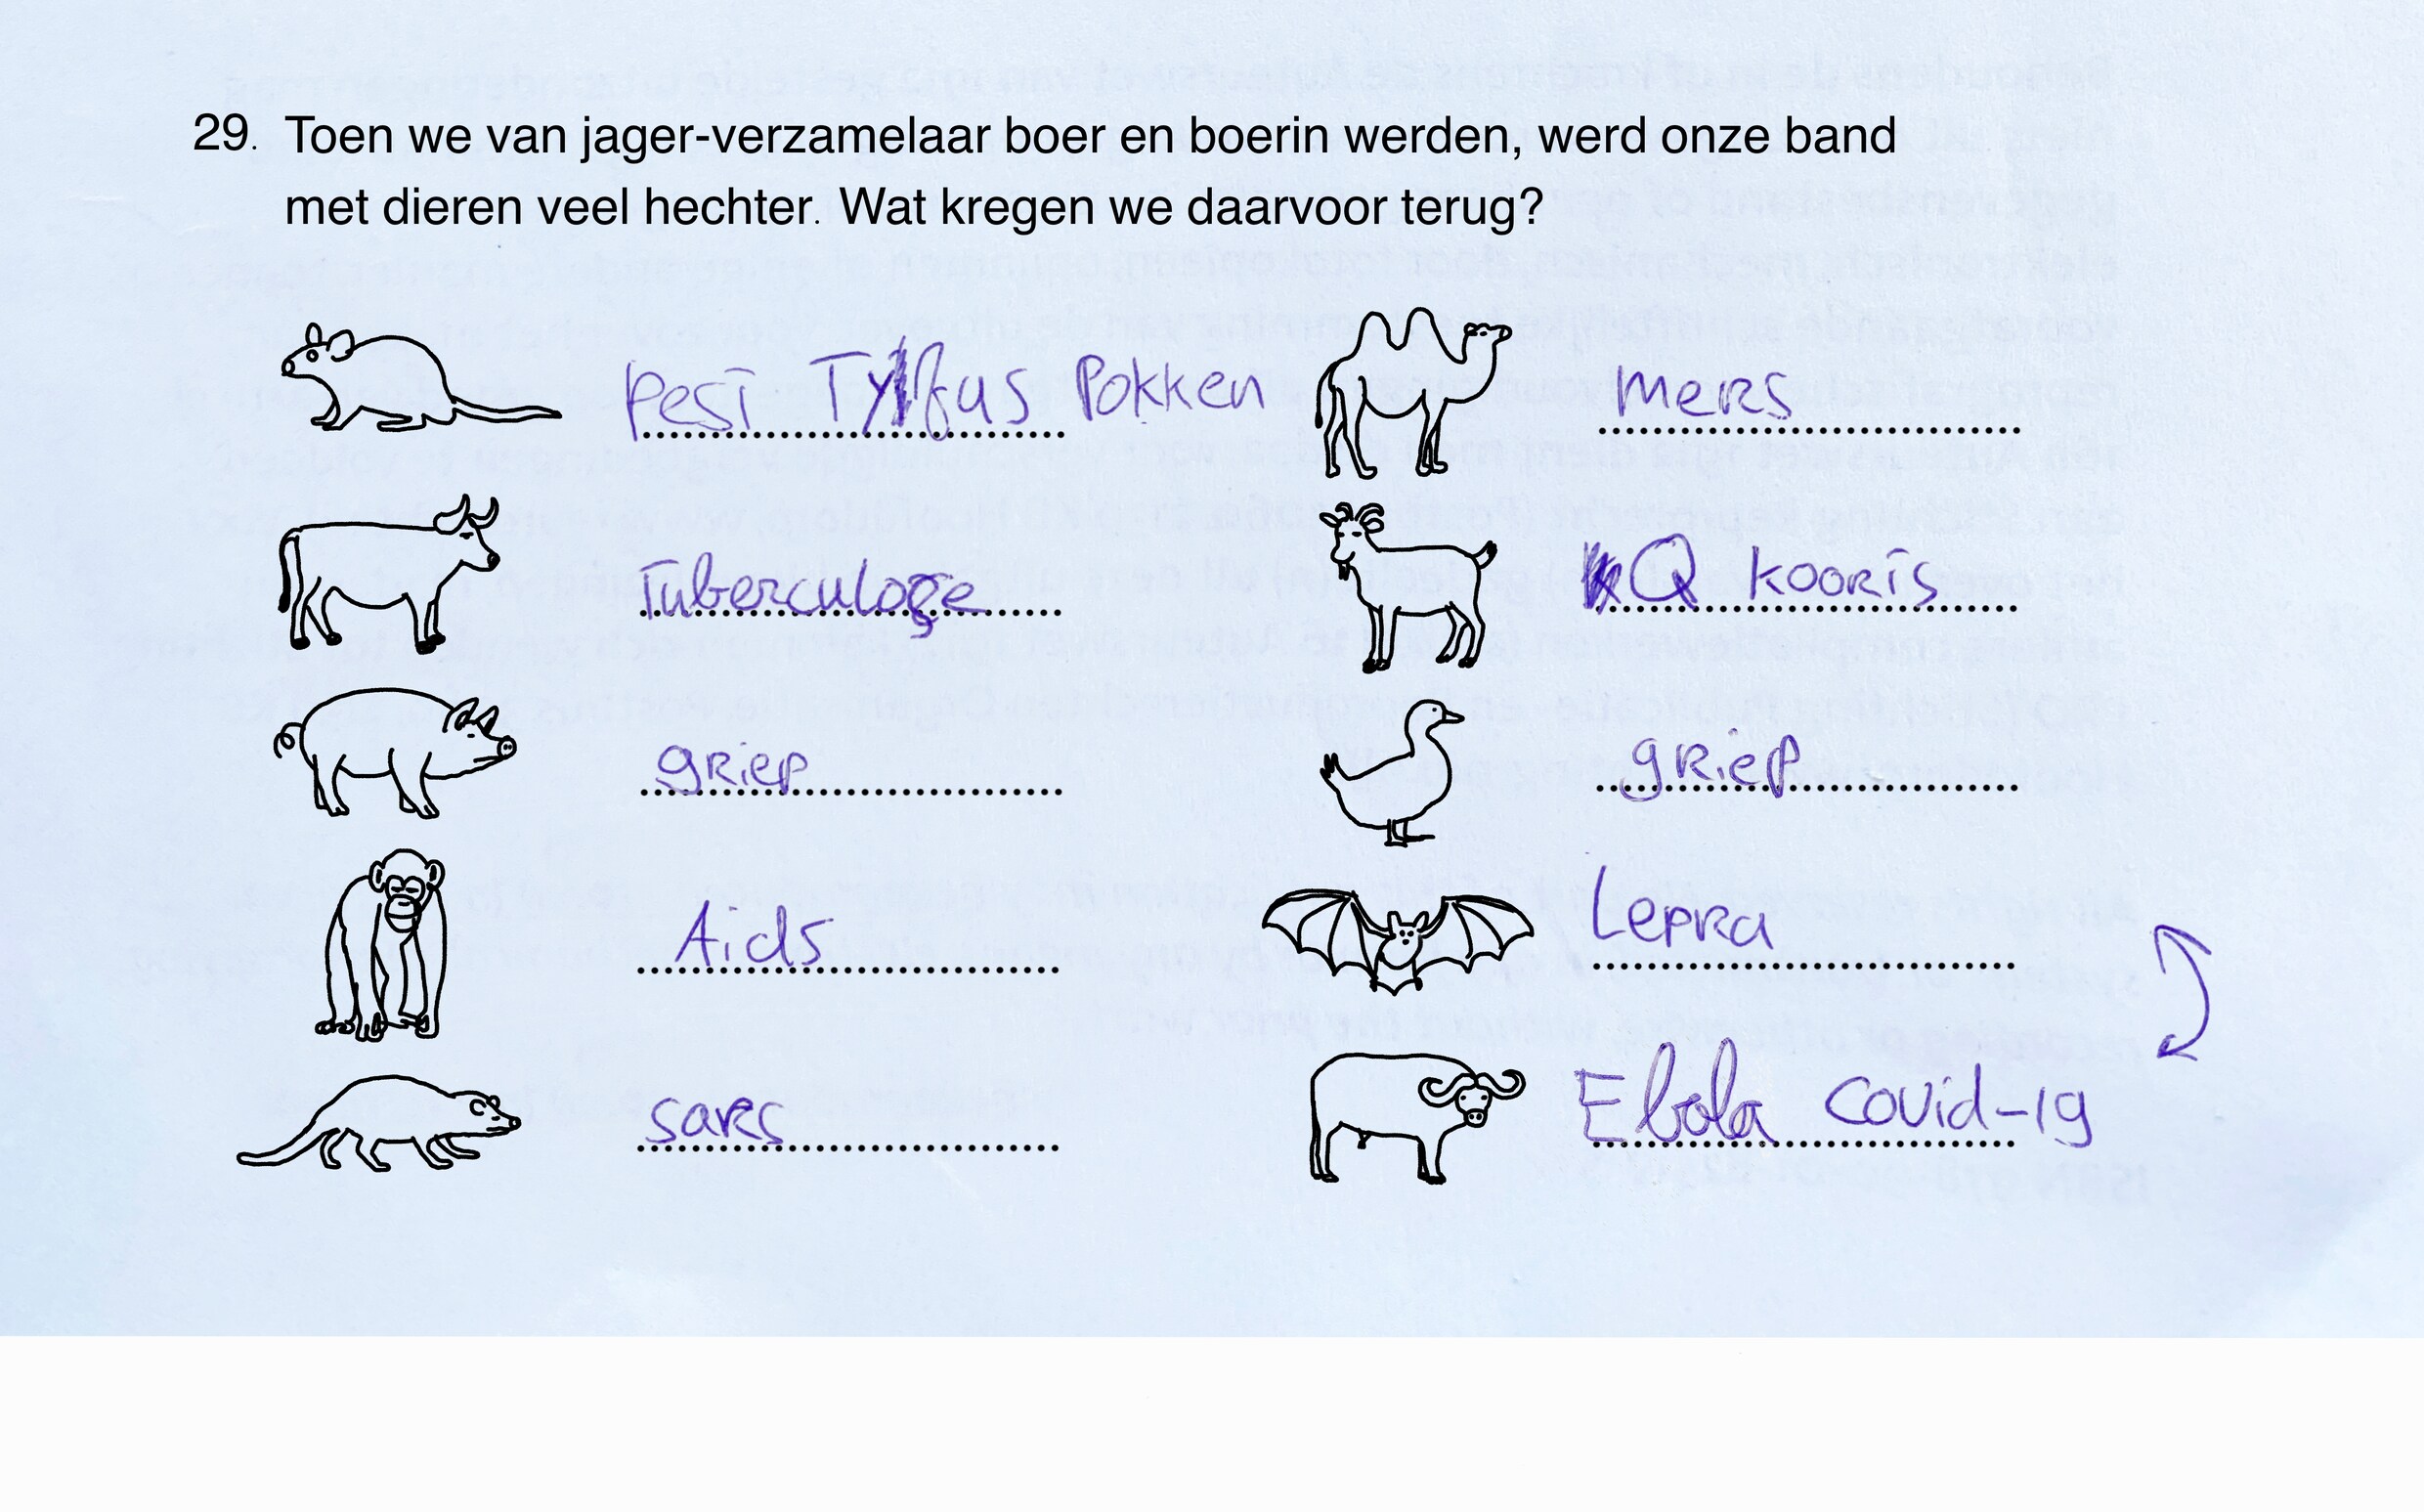 29. Toen we van jager-verzamelaar boer en boerin werden, werd onze band
met dieren veel hechter. Wat kregen we daarvoor terug?
Pest Tyfus Pokken
Mers
Tuberculose
Q kooris
griep
griep
Aids
Lepra
sars
Ebola Covid-19